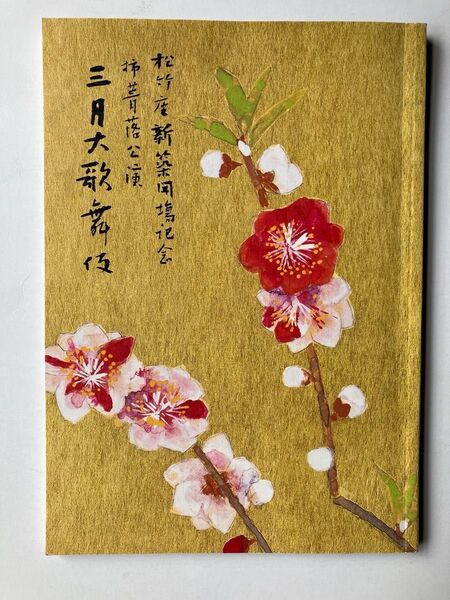 松竹座新築開場記念
杮葺落公演
三月大歌舞伎